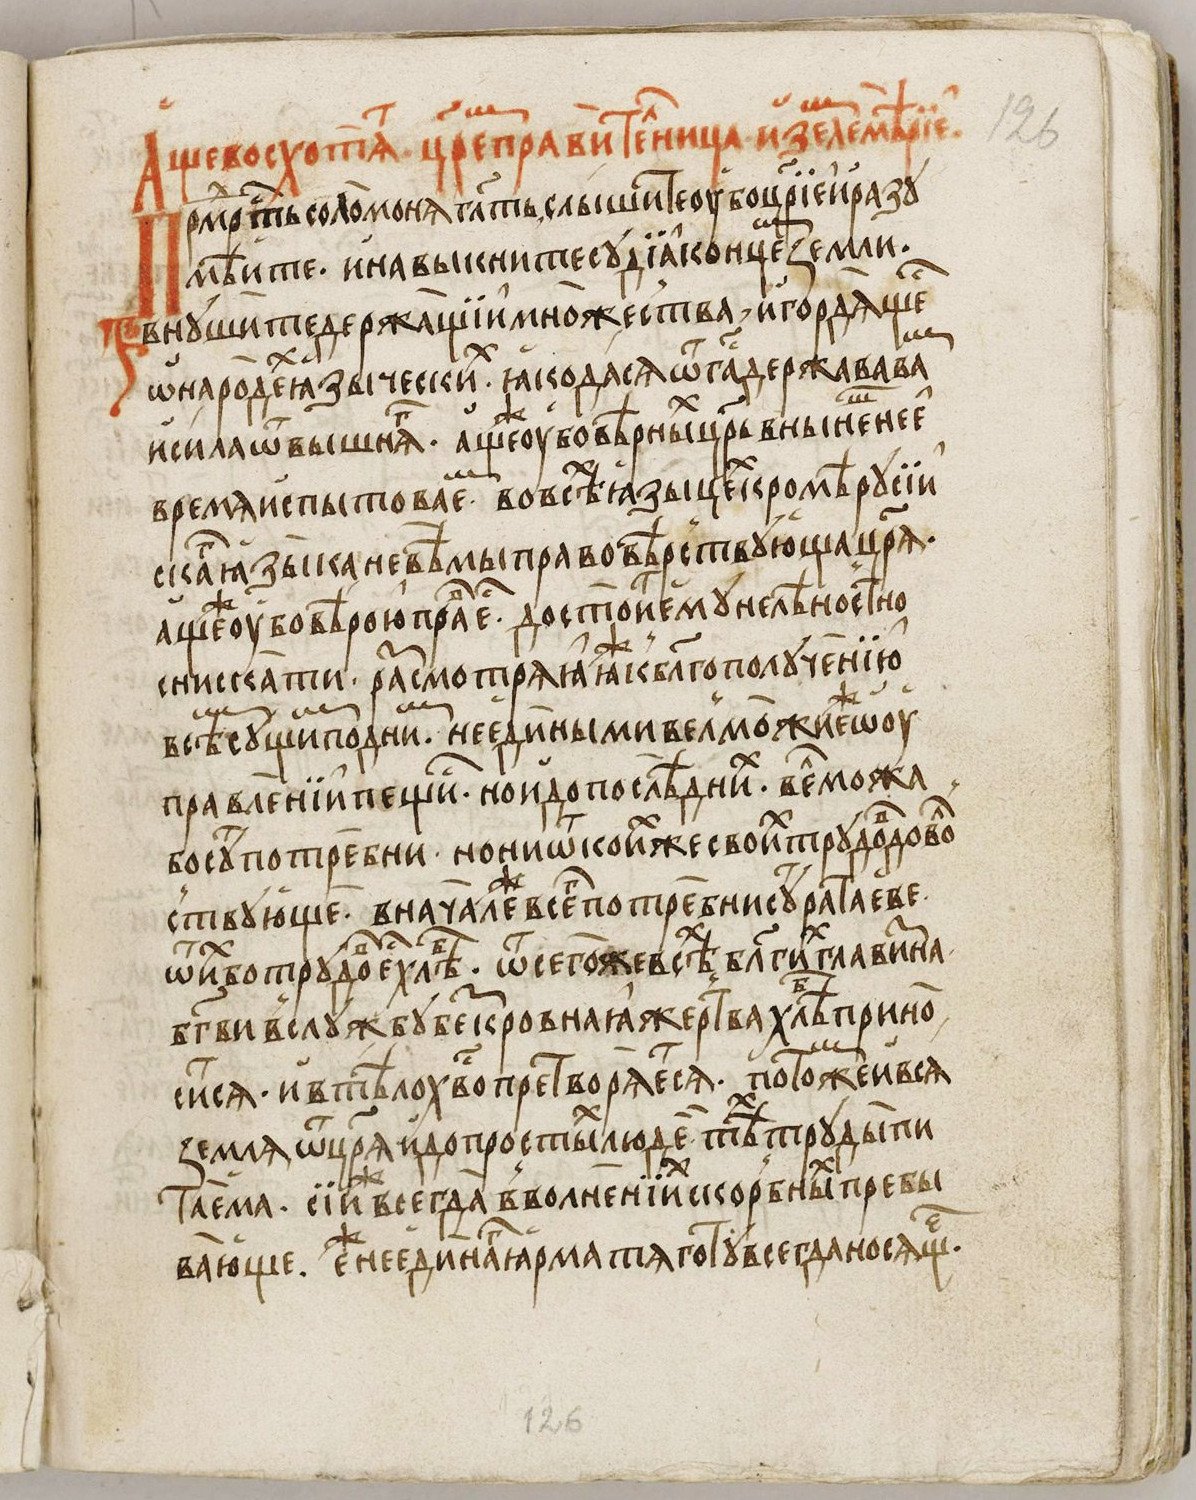 126
Аще восхотѧ̑т црⷭе правитеⷧница и землемѣрїе.
Прмⷣрⷭть соломонѧ гл҃ть, слышите оубо црⷭїе и разꙋ
мѣите. и навыкните сꙋдїа конце земли.
внꙋшите держащїи множества, и гордѧщеⷭ
ѡ народеⷯ ꙗзыческиⷯ. ꙗко дасѧ ѿ гⷭа держава ваⷨ
и сила ѿ вышнѧⷢ. ащеⷤ оубо вѣрныⷯ црⷭь в нынешнее
времѧ испытоваеⷨ. во всѣⷯ ꙗзыцеⷯ кромѣ рꙋсїи
скаⷢ ꙗзыка не вѣмы правовѣрствꙋюща црⷭѧ.
ащеⷤ оубо вѣрою праⷡ еⷭ. достоит емꙋ нелѣностно
снискати. расмотрѧꙗ ꙗⷤ к блгⷭополꙋченїю
всѣⷨ сꙋщиⷨ под ниⷨ. не едиными велможи еⷤ ѡ оу
правленїи пещиⷭ. но и до послѣдниⷯ. велможа
бо сꙋт потребни. но ни ѿ коиⷯ же своиⷯ трꙋдоⷡ доволⷭ
ствꙋюще. в началеⷤ всеⷢ потребни сꙋт ратаеве.
ѿ иⷯ бо трꙋдоⷡ еⷭ хлѣⷠ. ѿ сего же всѣⷯ блгⷭиⷯ главизна
бг҃ви в слꙋжбꙋ бескровнаꙗ жертва хлѣⷠ прино
ситсѧ. и в тѣло хвⷭо претворѧетсѧ. потоⷨ же и всѧ
землѧ ѿ црⷭѧ и до простыⷯ людеи тѣⷯ трꙋды пи
таема. сїиⷤ всегда в волненїиⷯ скорбныⷯ пребы
вающе. еⷤ не единаⷢ ꙗрма тѧготꙋ всегда носѧщеⷭ.
126